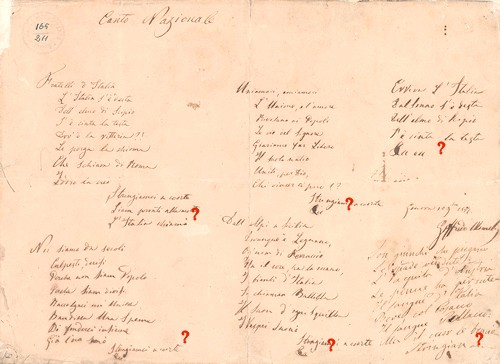 Canto Nazionale
Fratelli d'Italia
L'Italia s'è desta
Dell'elmo di Scipio
S'è cinta la testa
Dov'è la vittoria?!
Le porga la chioma
Che schiava di Roma
Iddio la creò
Stringiamci a coorte
Siam pronti alla morte
L'Italia chiamò
Noi siamo da secoli
Calpesti, derisi
Perché non siam Popolo
Perché siam divisi
Raccolgaci un'unica
Bandiera una Speme
Di fonderci insieme
Già l'ora suonò
Stringiamci a coorte
Uniamoci, amiamoci
L'Unione, e l'amore
Rivelano ai Popoli
Le vie del Signore
Giuriamo far Libero
Il suolo natio
Uniti, per Dio,
Chi vincer ci può!?
Stringiamci a coorte
Dall'Alpi a Sicilia
Dovunque è Legnano,
Ogn'uom di Ferruccio
Ha il core, ha la mano,
I bimbi d'Italia
Si chiaman Balilla
Il suon d'ogni squilla
I Vespri suonò
Stringiamci a coorte
Evviva l'Italia
Dal sonno s'è desta
Dell'elmo di Scipio
S'è cinta la testa
Son giunchi che piegano
Le spade vendute
L'Aquila d'Austria
Le penne ha perdute
Il sangue d'Italia
Il sangue Polacco